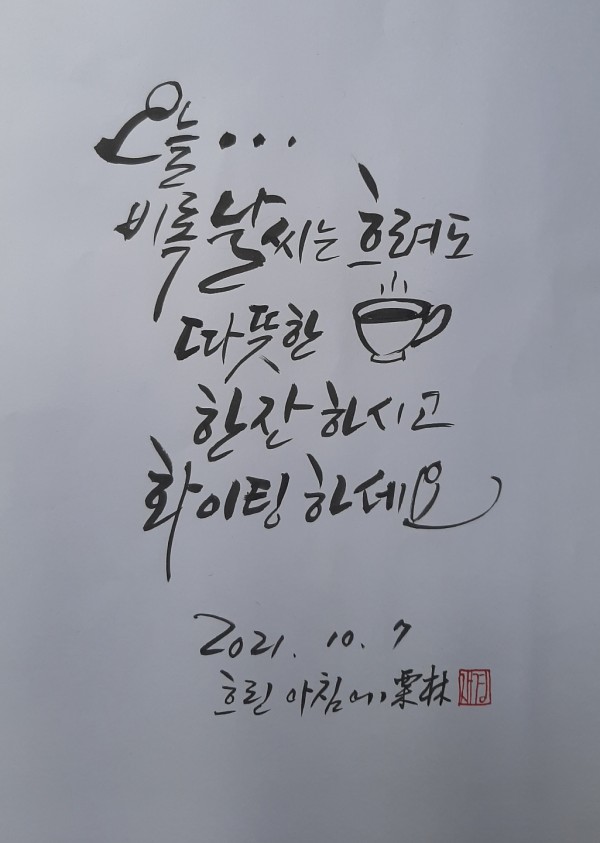 오늘...
비록 날씨는 흐려도
따뜻한
한잔 하시고
화이팅 하세요
2021. 10. 7
흐린 아침에, 栗林